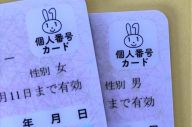 個人番号
カード
性別 女
月11日まで有効
年 月 日
個人番号
カード
性別 男
まで有効
月 日